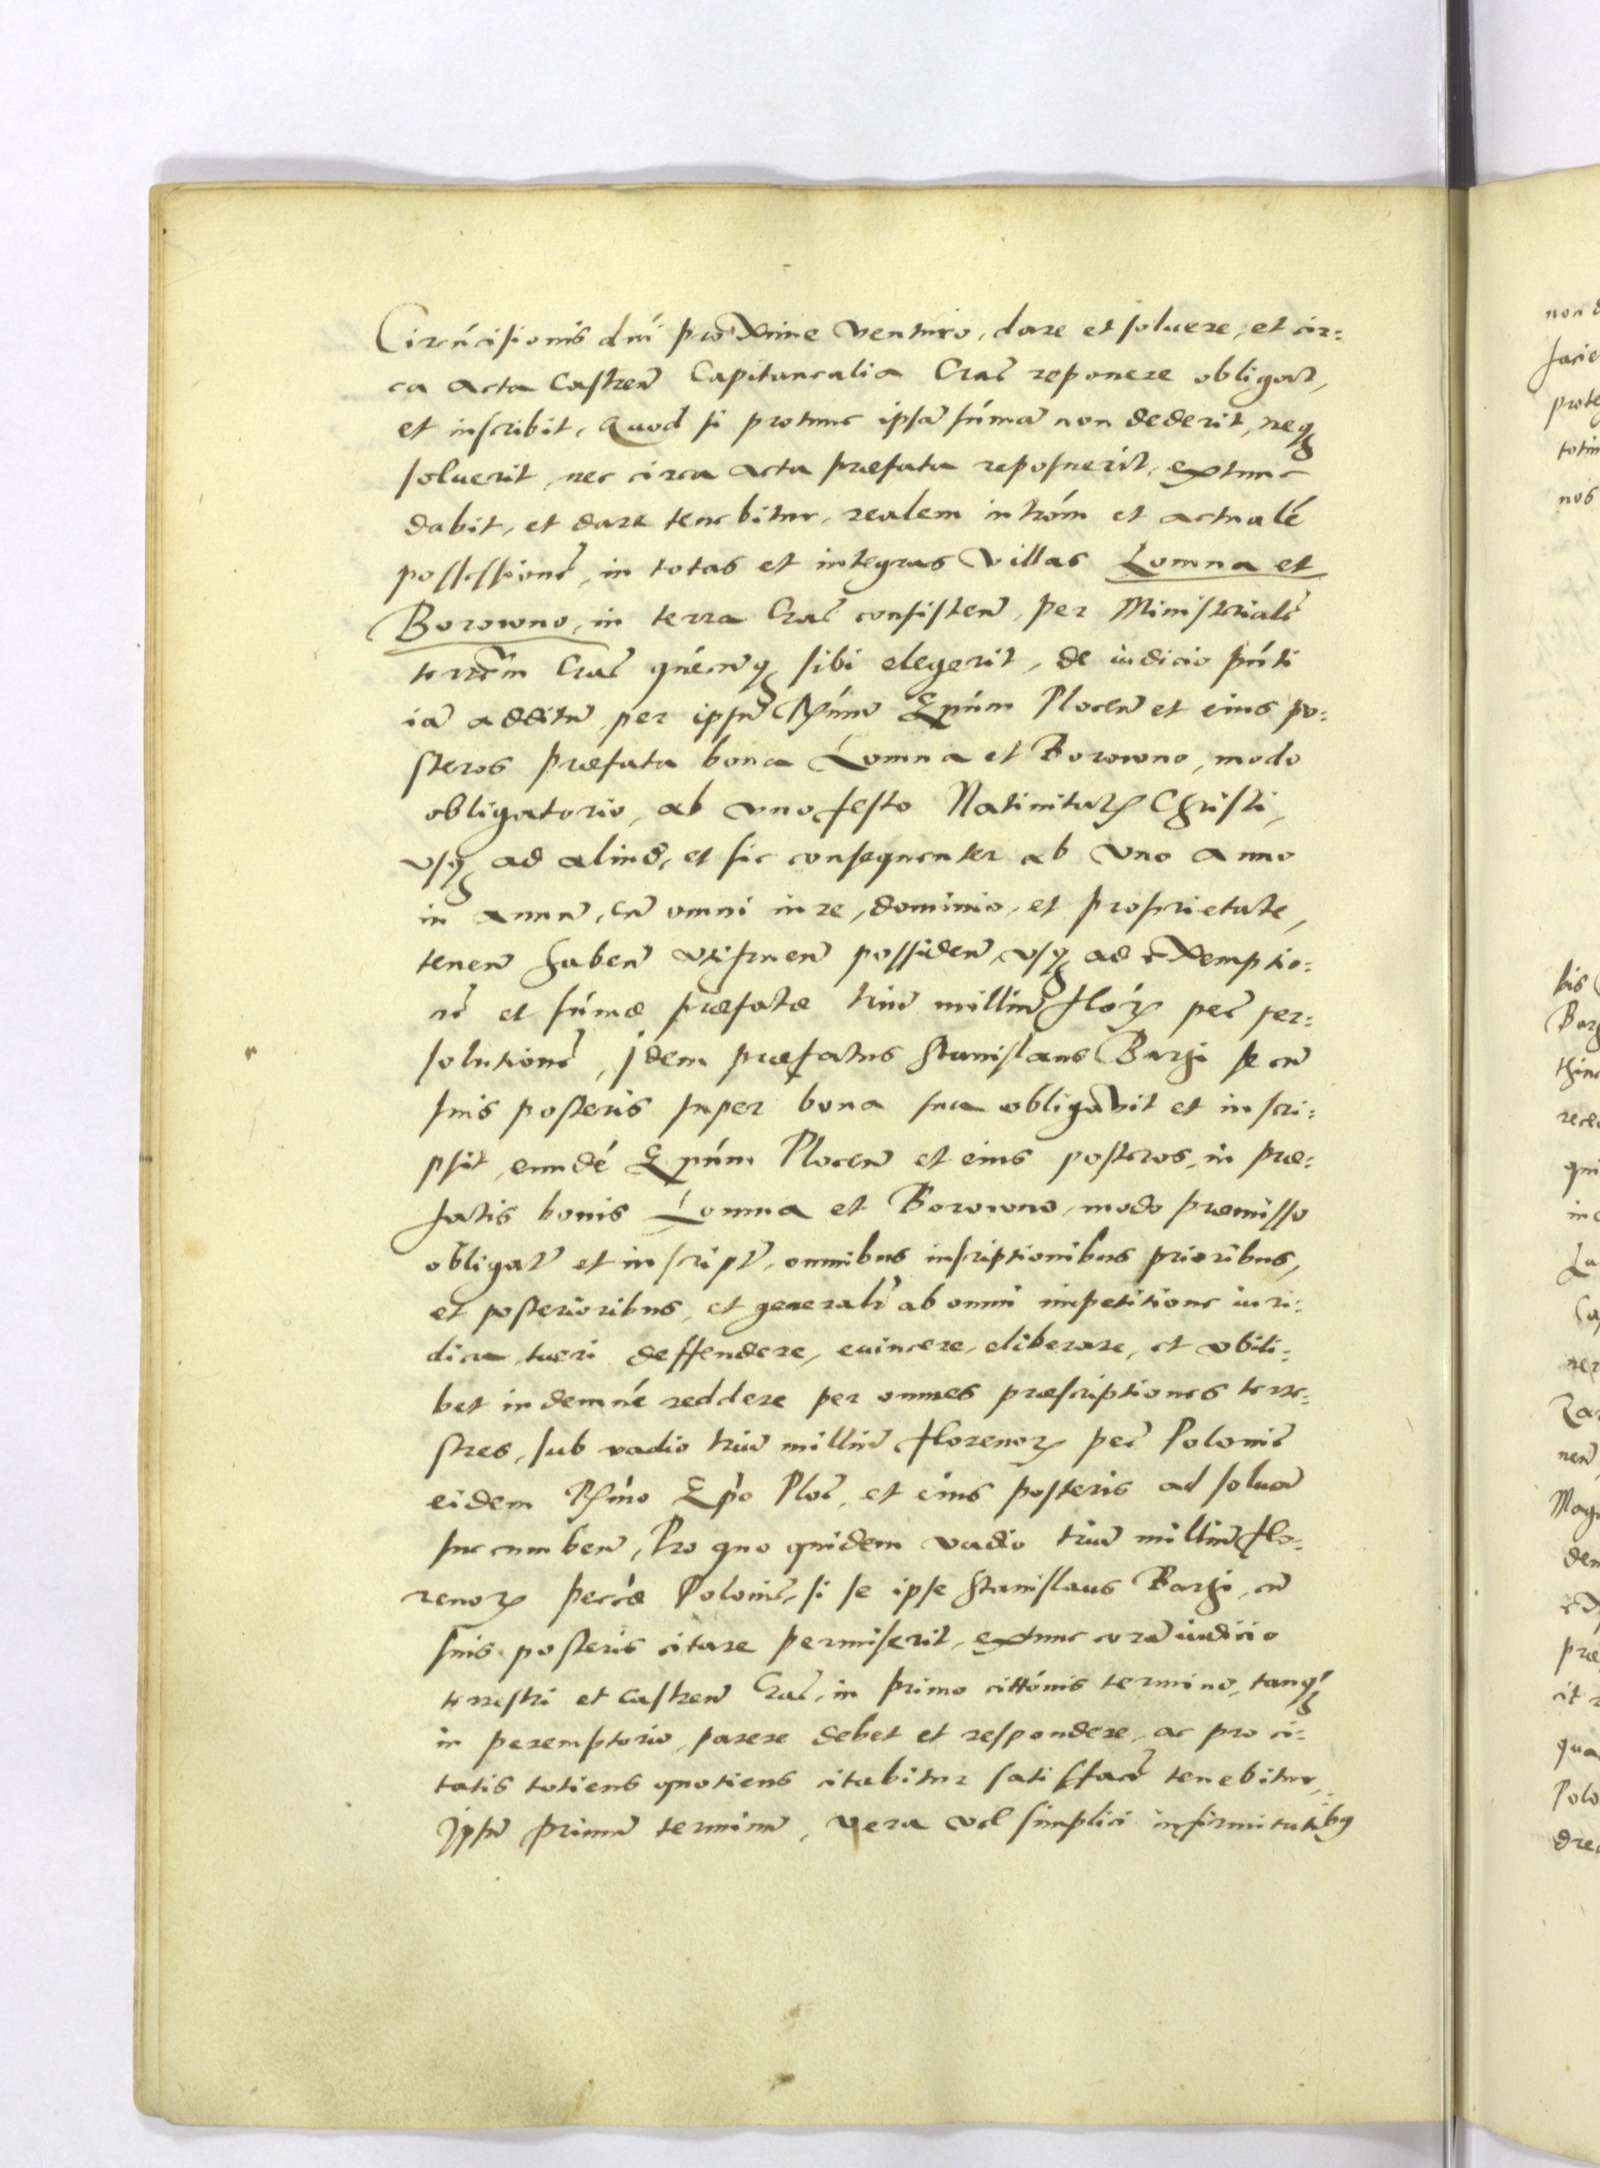 Circũcisionis dñi proxime venturo, dare et soluere, et cir=
ca acta Castreñ Capitanealia Craĉ reponere obligat,
et inscribit, Quod si protunc ipsã sũmã non dederit, neq3
soluerit, nec circa acta præfata reposuerit, extunc
dabit, et dare tenebitur, realem intrõm et actualẽ
possessionẽ, in totas et integras Villas Lomna et
Borowno, in terra Craĉ consisteñ, per Ministerialẽ
terrẽm Craĉ quẽcũq3 sibi elegerit, de iudicio pñti
iã additũ, per ipsũ Rẽum Epũm Ploceñ et eius po=
steros præfata bona Lomna et Borowno, modo
obligatorio, ab vno festo Natiuitatꝭ Christi,
vsq3 ad aliud, et sic consequenter ab vno anno
in annũ, cũ omni iure, dominio, et proprietate,
teneñ habeñ vtifrueñ possideñ, vsq3 ad exemptio=
nẽ et sũmæ præfatæ triũ milliũ floꝝ peĉ per=
solutionẽ, Idem præfatus Stanislaus Barzi se cũ
suis posteris super bona sua obligauit et inscri=
psit, eundẽ Epũm Ploceñ et eius posteros, in præ=
fatis bonis Lomna et Borowno, modo præmisso
obligat̃ et inscript̃, omnibus inscriptionibus prioribus,
et posterioribus, et generalr̃ ab omni impetitione iuri=
dica, tueri deffendere, euincere, eliberare, et vbili=
bet indemnẽ reddere per omnes præscriptiones terre=
stres, sub vadio triũ milliũ florenoꝝ peĉ Poloniĉ
eidem Rẽmo Epõ Ploĉ, et eius posteris ad soluã
succumbeñ, Pro quo quidem vadio triũ milliũ flo=
renoꝝ peĉciæ Poloniĉ, si se ipse Stanislaus Barzi, cũ
suis posteris citare permiserit, extunc corã iudicio
terrestri et castreñ Craĉ, in primo cittõnis termino, tanq3
in peremptorio, parere debet et respondere, ac pro ci=
tatis totiens quotiens citabitur satisfacẽ tenebitur,
Ipsũ primũ terminũ, vera vel simplici infirmitatib9